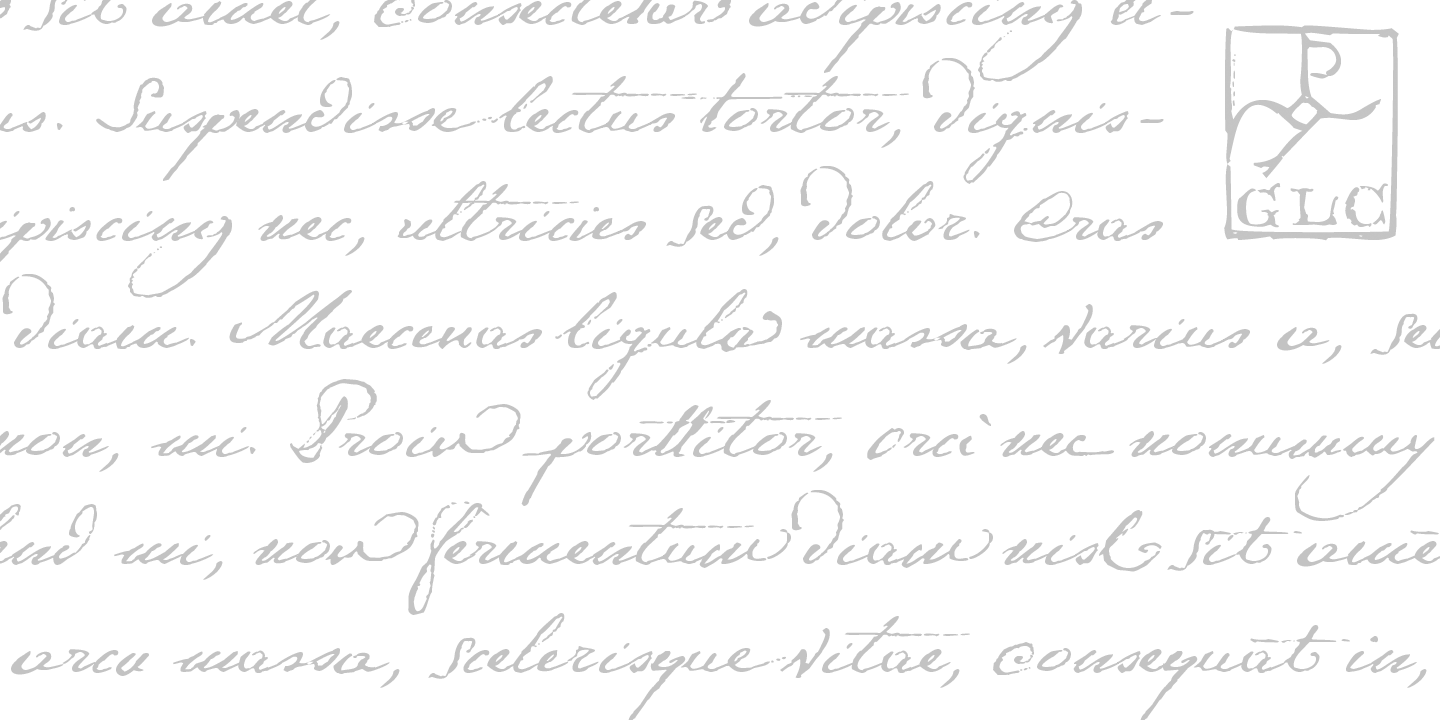 sit amet, consectetuer adipiscing el-
us. Suspendisse lectus tortor, dignis-
ipiscing nec, ultricies sed, dolor. Cras
diam. Maecenas ligula massa, varius a, sed
non, mi. Proin porttitor, orci nec nonummy
lend mi, non fermentum diam nisl sit ame
arcu massa, scelerisque vitae, consequat in,
P
GLC